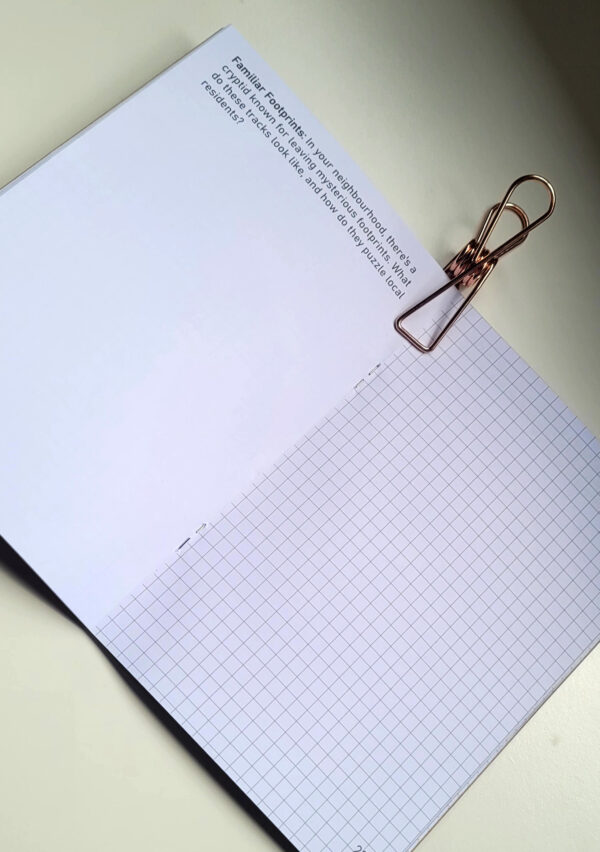 Familiar Footprints: In your neighbourhood, there's a
cryptid known for leaving mysterious footprints. What
do these tracks look like, and how do they puzzle local
residents?